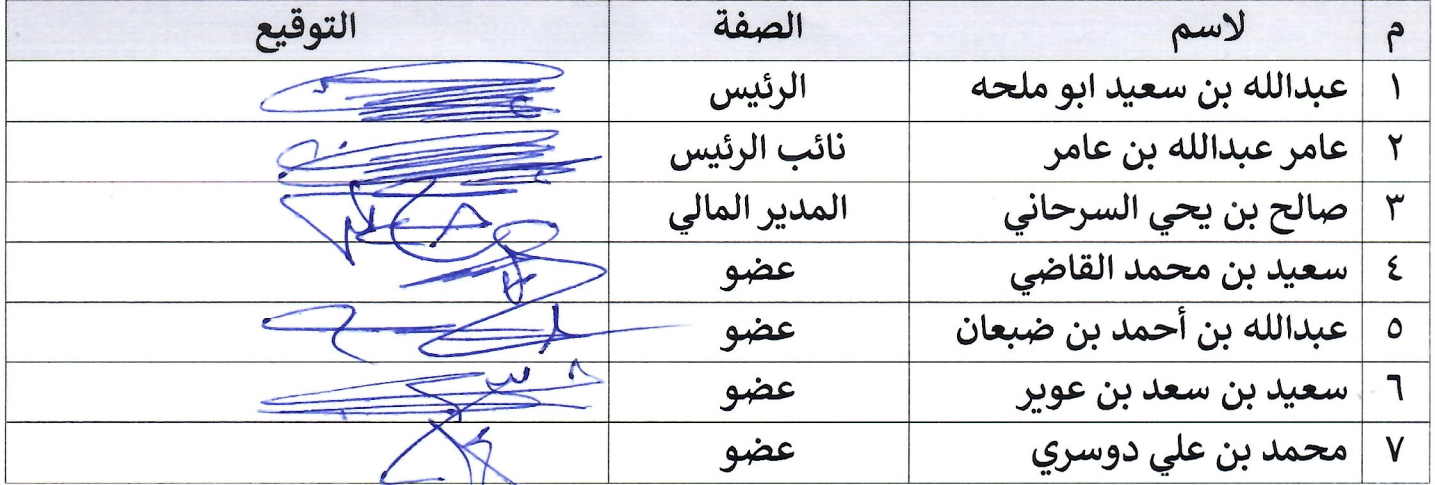 م لاسم الصفة التوقيع
١ عبدالله بن سعيد ابو ملحه الرئيس
٢ عامر عبدالله بن عامر نائب الرئيس
٣ صالح بن يحي السرحاني المدير المالي
٤ سعيد بن محمد القاضي عضو
٥ عبدالله بن أحمد بن ضبعان عضو
٦ سعيد بن سعد بن عوير عضو
٧ محمد بن علي دوسري عضو